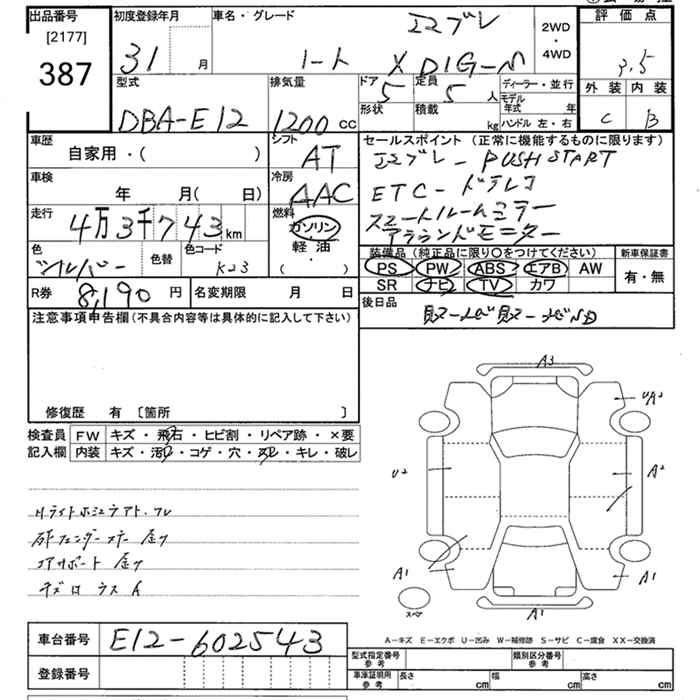 出品番号 [2177] 387
初度登録年月 31 月
車名・グレード エマブレ
ノート X DIG-S
2WD・4WD
評価点 3.5
外装 内装
C B
型式 DBA-E12
排気量 1200 cc
ドア 5 定員 5 人
形状 積載 kg
ディーラー・並行
モデル年式 年
ハンドル 左・右
車歴 自家用・( )
シフト AT
車検 年 月( 日)
冷房 AAC
走行 4万3千743 km
燃料 ガソリン
軽・油
・( )
色 シルバー 色替 色コード K23
R券 8,190 円 名変期限 月 日
セールスポイント (正常に機能するものに限ります)
エマブレ - PUSH START
ETC - ドラレコ
スマートルームミラー
アラウンドモニター
装備品 (純正品に限り○をつけてください) 新車保証書
PS PW ABS エアB AW
SR ナビ TV カワ
有・無
後日品
注意事項申告欄 (不具合内容等は具体的に記入して下さい)
修復歴 有 〔箇所 〕
検査員 FW キズ・飛石・ヒビ割・リペア跡・×要
記入欄 内装 キズ・汚れ・コゲ・穴・スレ・キレ・破レ
A3
UA2
U2
A2
A1
A1
スペア
A1
コアサポート
A−キズ E−エクボ U−凹み W−補修跡 S−サビ C−腐食 XX−交換済
車台番号 E12-602543
登録番号
型式指定番号 参考 類別区分番号 参考
車庫証明用 参考 長さ cm 幅 cm 高さ cm